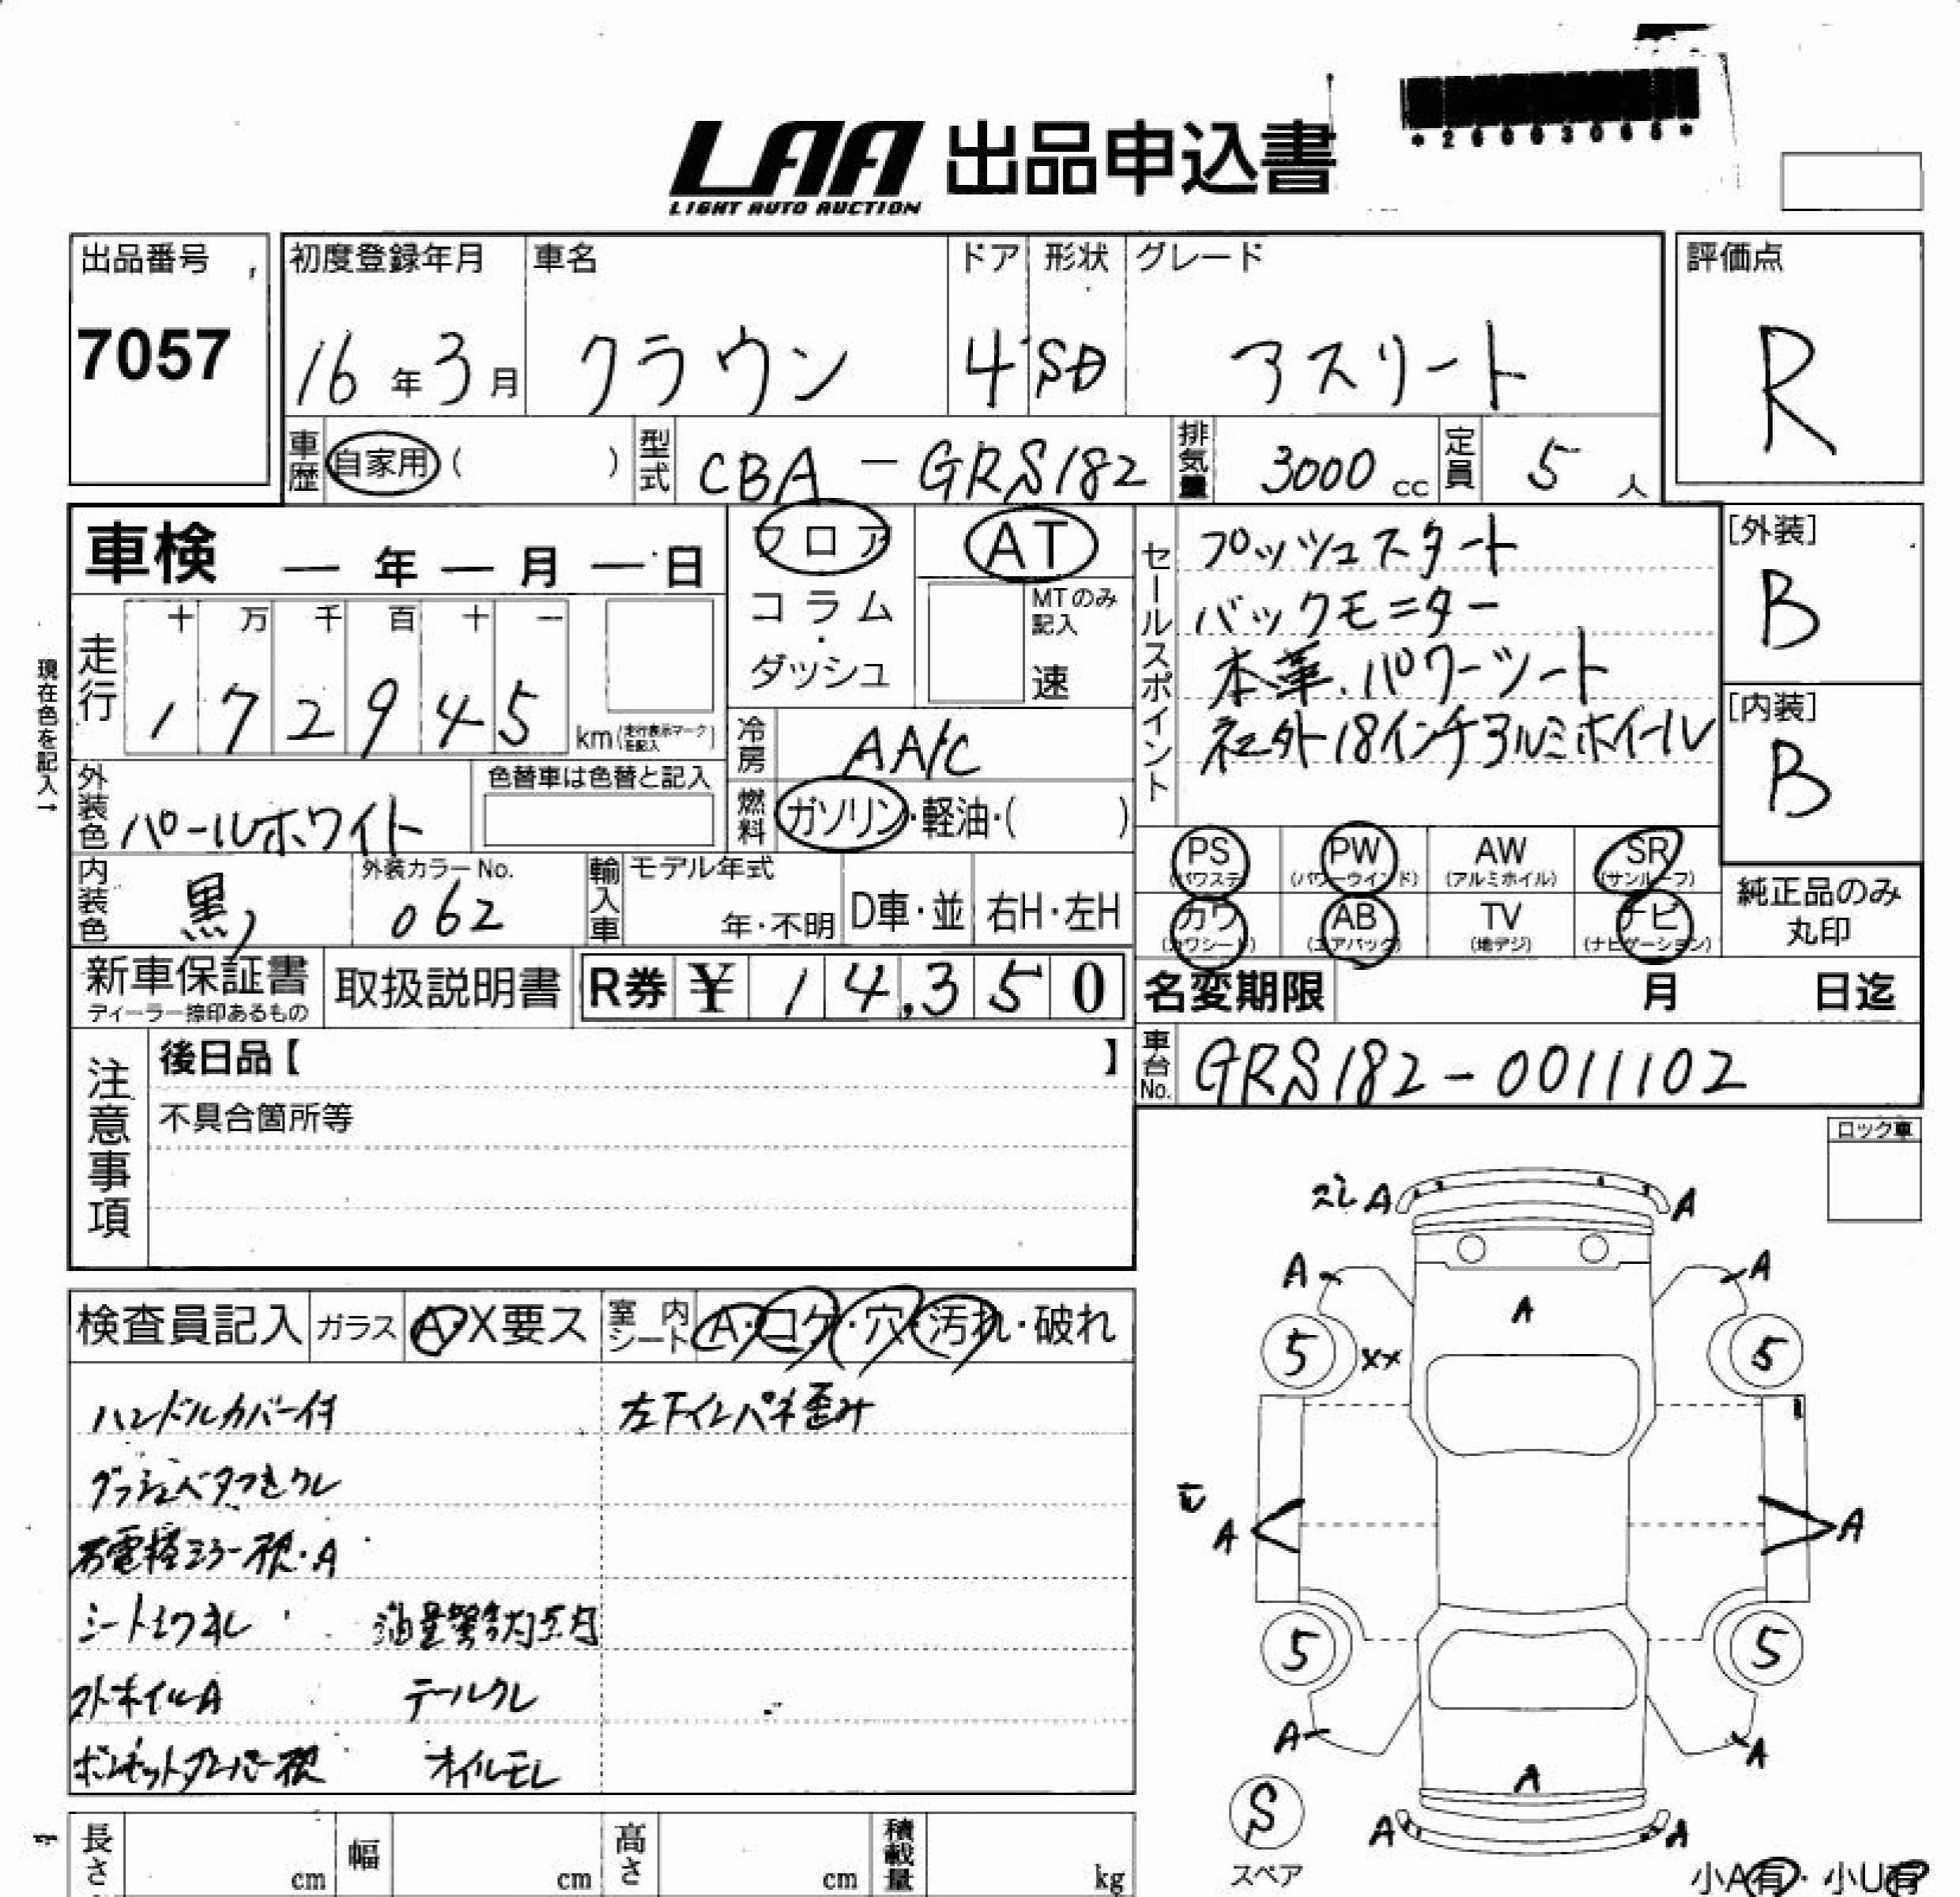 *26003065*
LAA 出品申込書
LIGHT AUTO AUCTION
出品番号 初度登録年月 車名 ドア 形状 グレード 評価点
7057 16年3月 クラウン 4 SD アスリート R
車歴 自家用( ) 型式 CBA-GRS182 排気量 3000cc 定員 5人
車検 ー年ー月ー日 フロア AT セールスポイント プッシュスタート [外装]
コラム・ MTのみ記入 バックモニター B
ダッシュ 速 本革、パワーシート
走行 十万千百十一 172945 km(走行表示マークを記入) 社外18インチアルミホイール [内装]
現在色を記入→ 冷房 AA/C B
外装色 パールホワイト 色替車は色替と記入 燃料 ガソリン・軽油・( )
PS(パワステ) PW(パワーウインド) AW(アルミホイル) SR(サンルーフ)
内装色 黒 外装カラーNo. 062 輸入車 モデル年式 年・不明 D車・並 右H・左H
カワ(カワシート) AB(エアバッグ) TV(地デジ) ナビ(ナビゲーション) 純正品のみ丸印
新車保証書 ディーラー捺印あるもの 取扱説明書 R券 ¥14,350 名変期限 月 日迄
注意事項 後日品【 】 車台No. GRS182-0011102
不具合箇所等
ロック車
検査員記入 ガラス A・X要ス 室内シート A・コゲ・穴・汚れ・破れ
ハンドルカバー付 左下インパネ歪み
ダッシュベタつきワレ
右電格ミラー視・A
シート切れ 油量警告灯点灯
アルミホイールA テールワレ
ボンネットダンパー視 オイルモレ
スレ A A
A A
A
5 XX 5
モ
A A
5 5
A A
A
S A A
スペア
小A有・小U有
長さ cm 幅 cm 高さ cm 積載量 kg